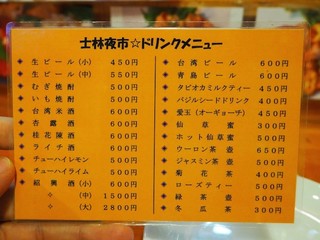 士林夜市☆ドリンクメニュー
◈ 生ビール(小) 450円
◈ 生ビール(中) 550円
◈ むぎ焼酎 500円
◈ いも焼酎 500円
◈ 台湾米酒 600円
◈ 杏露酒 600円
◈ 桂花陳酒 600円
◈ ライチ酒 600円
◈ チューハイレモン 500円
◈ チューハイライム 500円
◈ 紹興酒(小) 600円
◇ (中) 1500円
◇ (大) 2800円
◈ 台湾ビール 600円
◈ 青島ビール 600円
◈ タピオカミルクティー 450円
◈ バジルシードドリンク 400円
◈ 愛玉(オーギョーチ) 450円
◈ 仙草蜜 300円
◈ ホット仙草蜜 500円
◈ ウーロン茶 壺 650円
◈ ジャスミン茶 壺 500円
◈ 菊花茶 400円
◈ ローズティー 500円
◈ 緑茶 壺 500円
◈ 冬瓜茶 300円